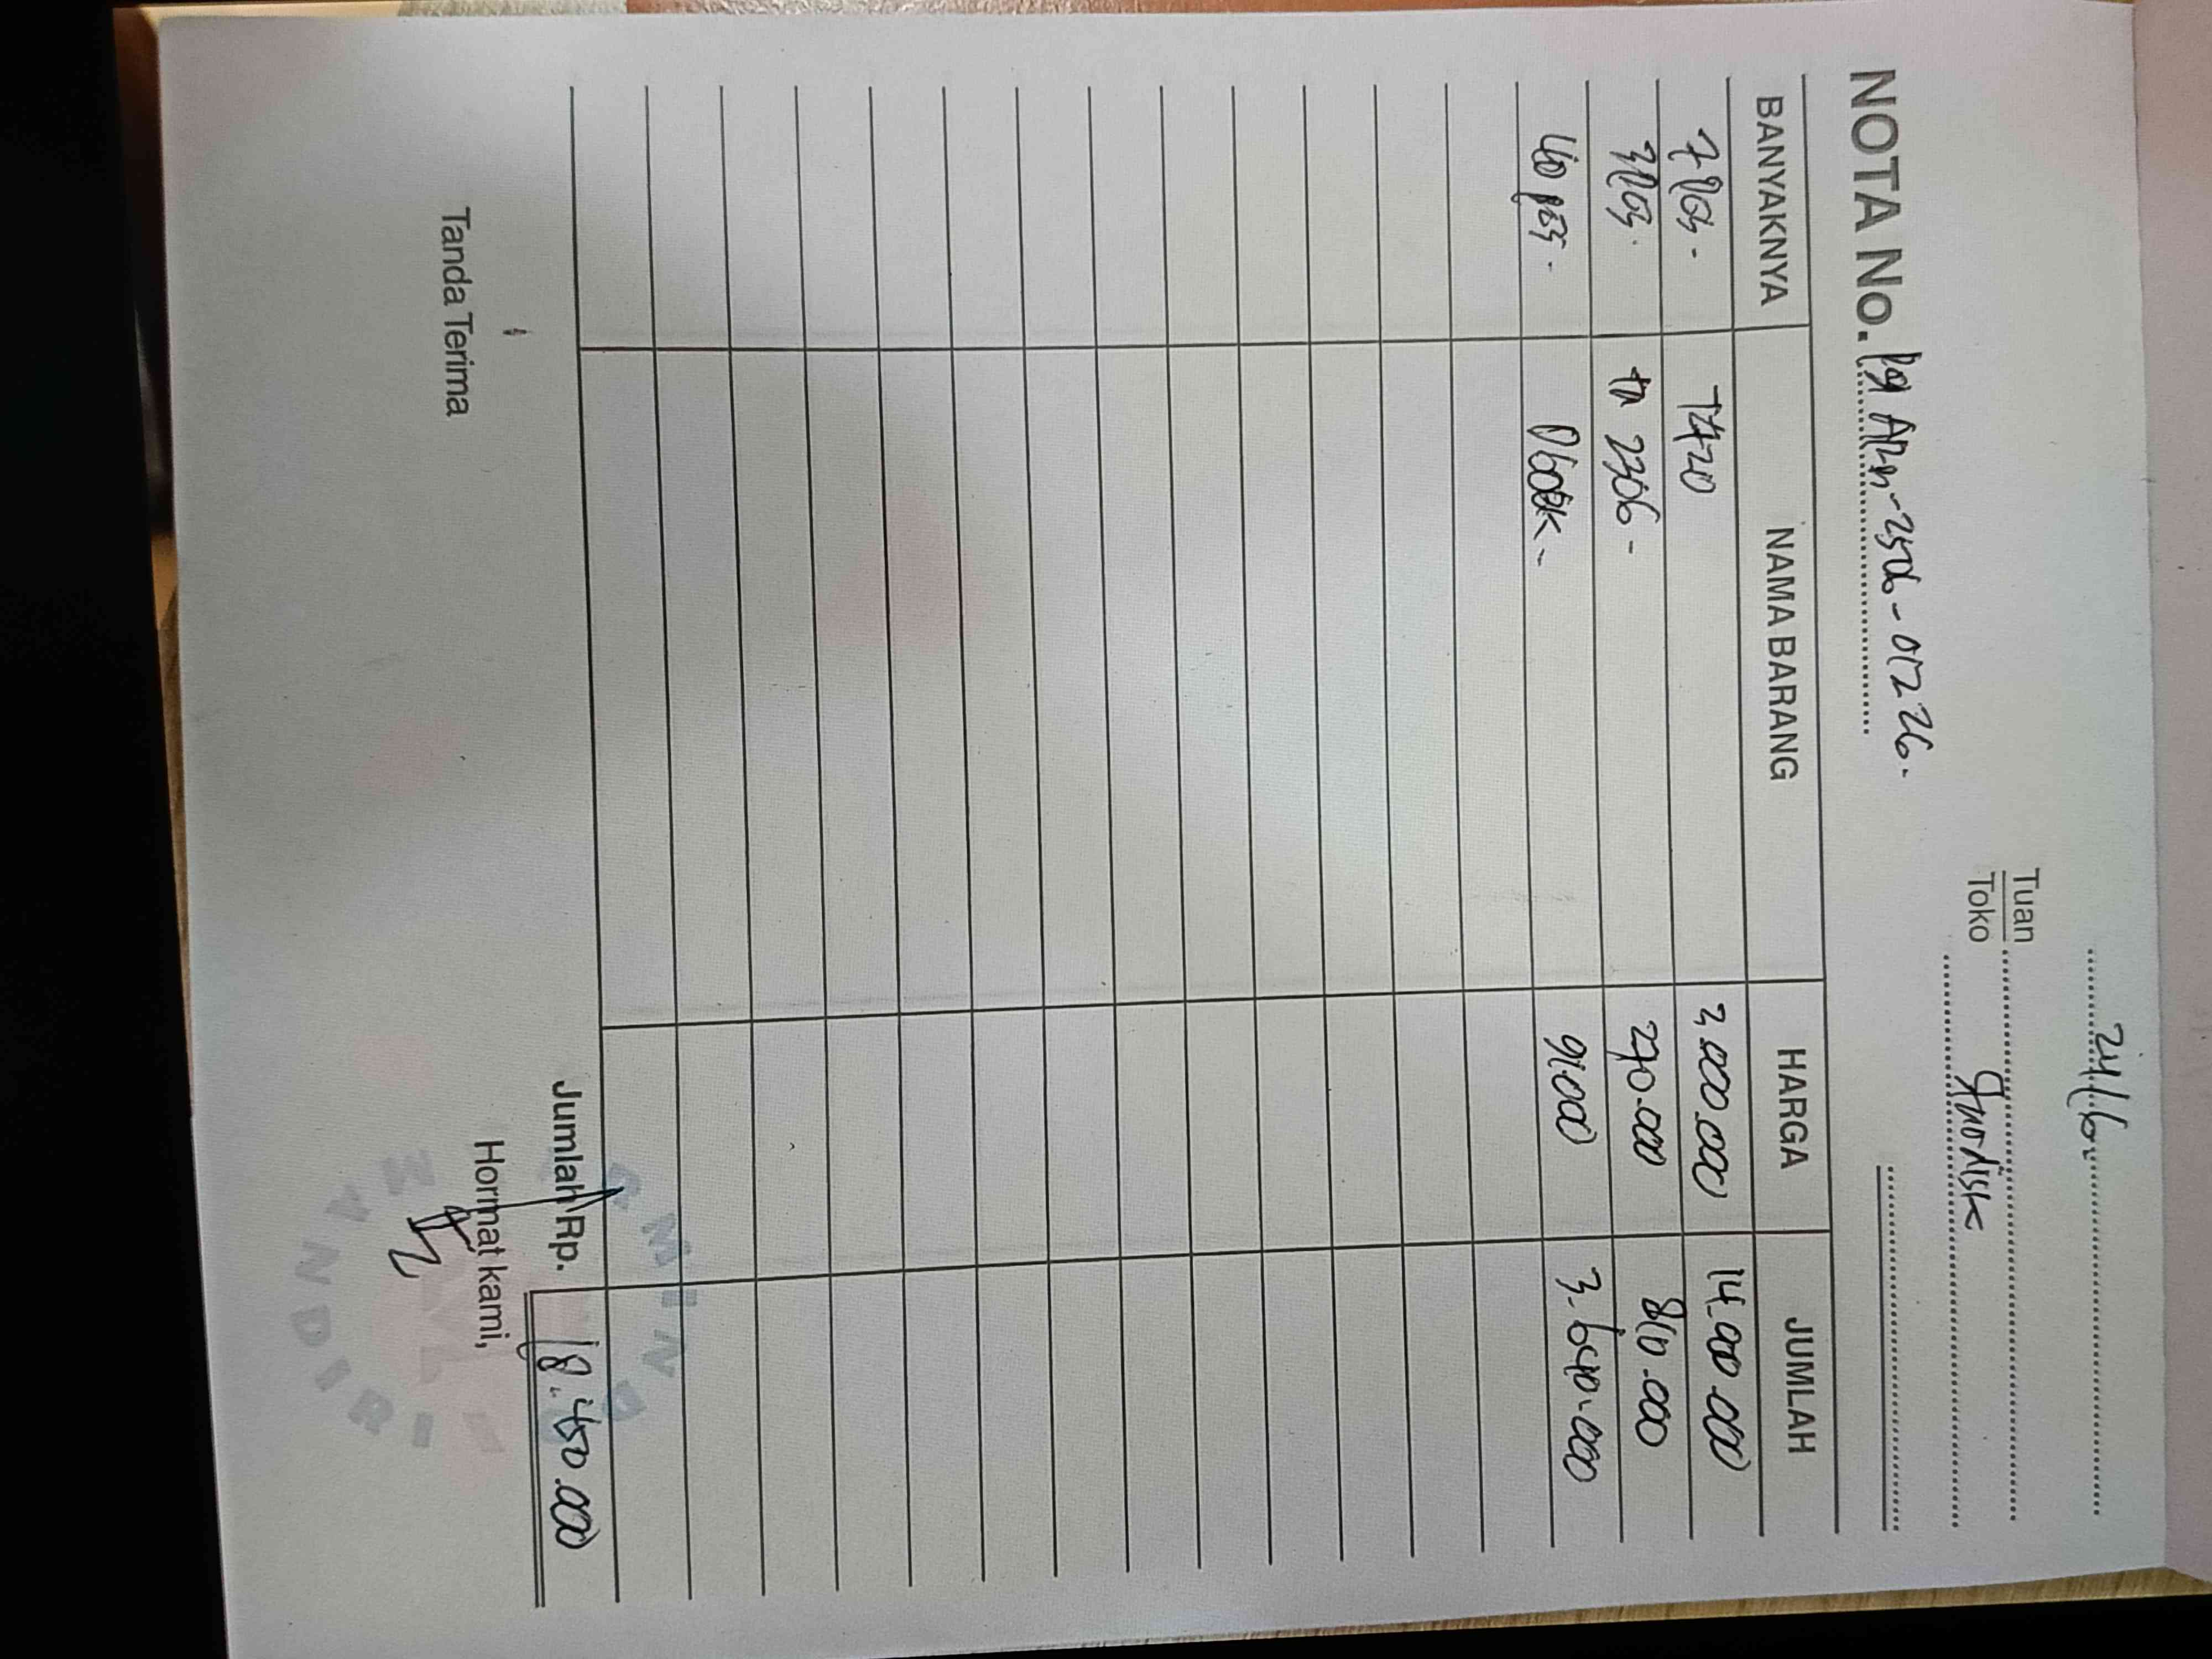 24/6
Tuan
Toko
NOTA No. -2506-01226.
BANYAKNYA NAMA BARANG HARGA JUMLAH
7 pcs - T420 2.000.000 14.000.000
3 pcs. 2306 - 270.000 810.000
40 pcs. 91.000 3.640.000
Jumlah Rp. 18.450.000
Tanda Terima Hormat kami,
GEMINI
MANDIRI